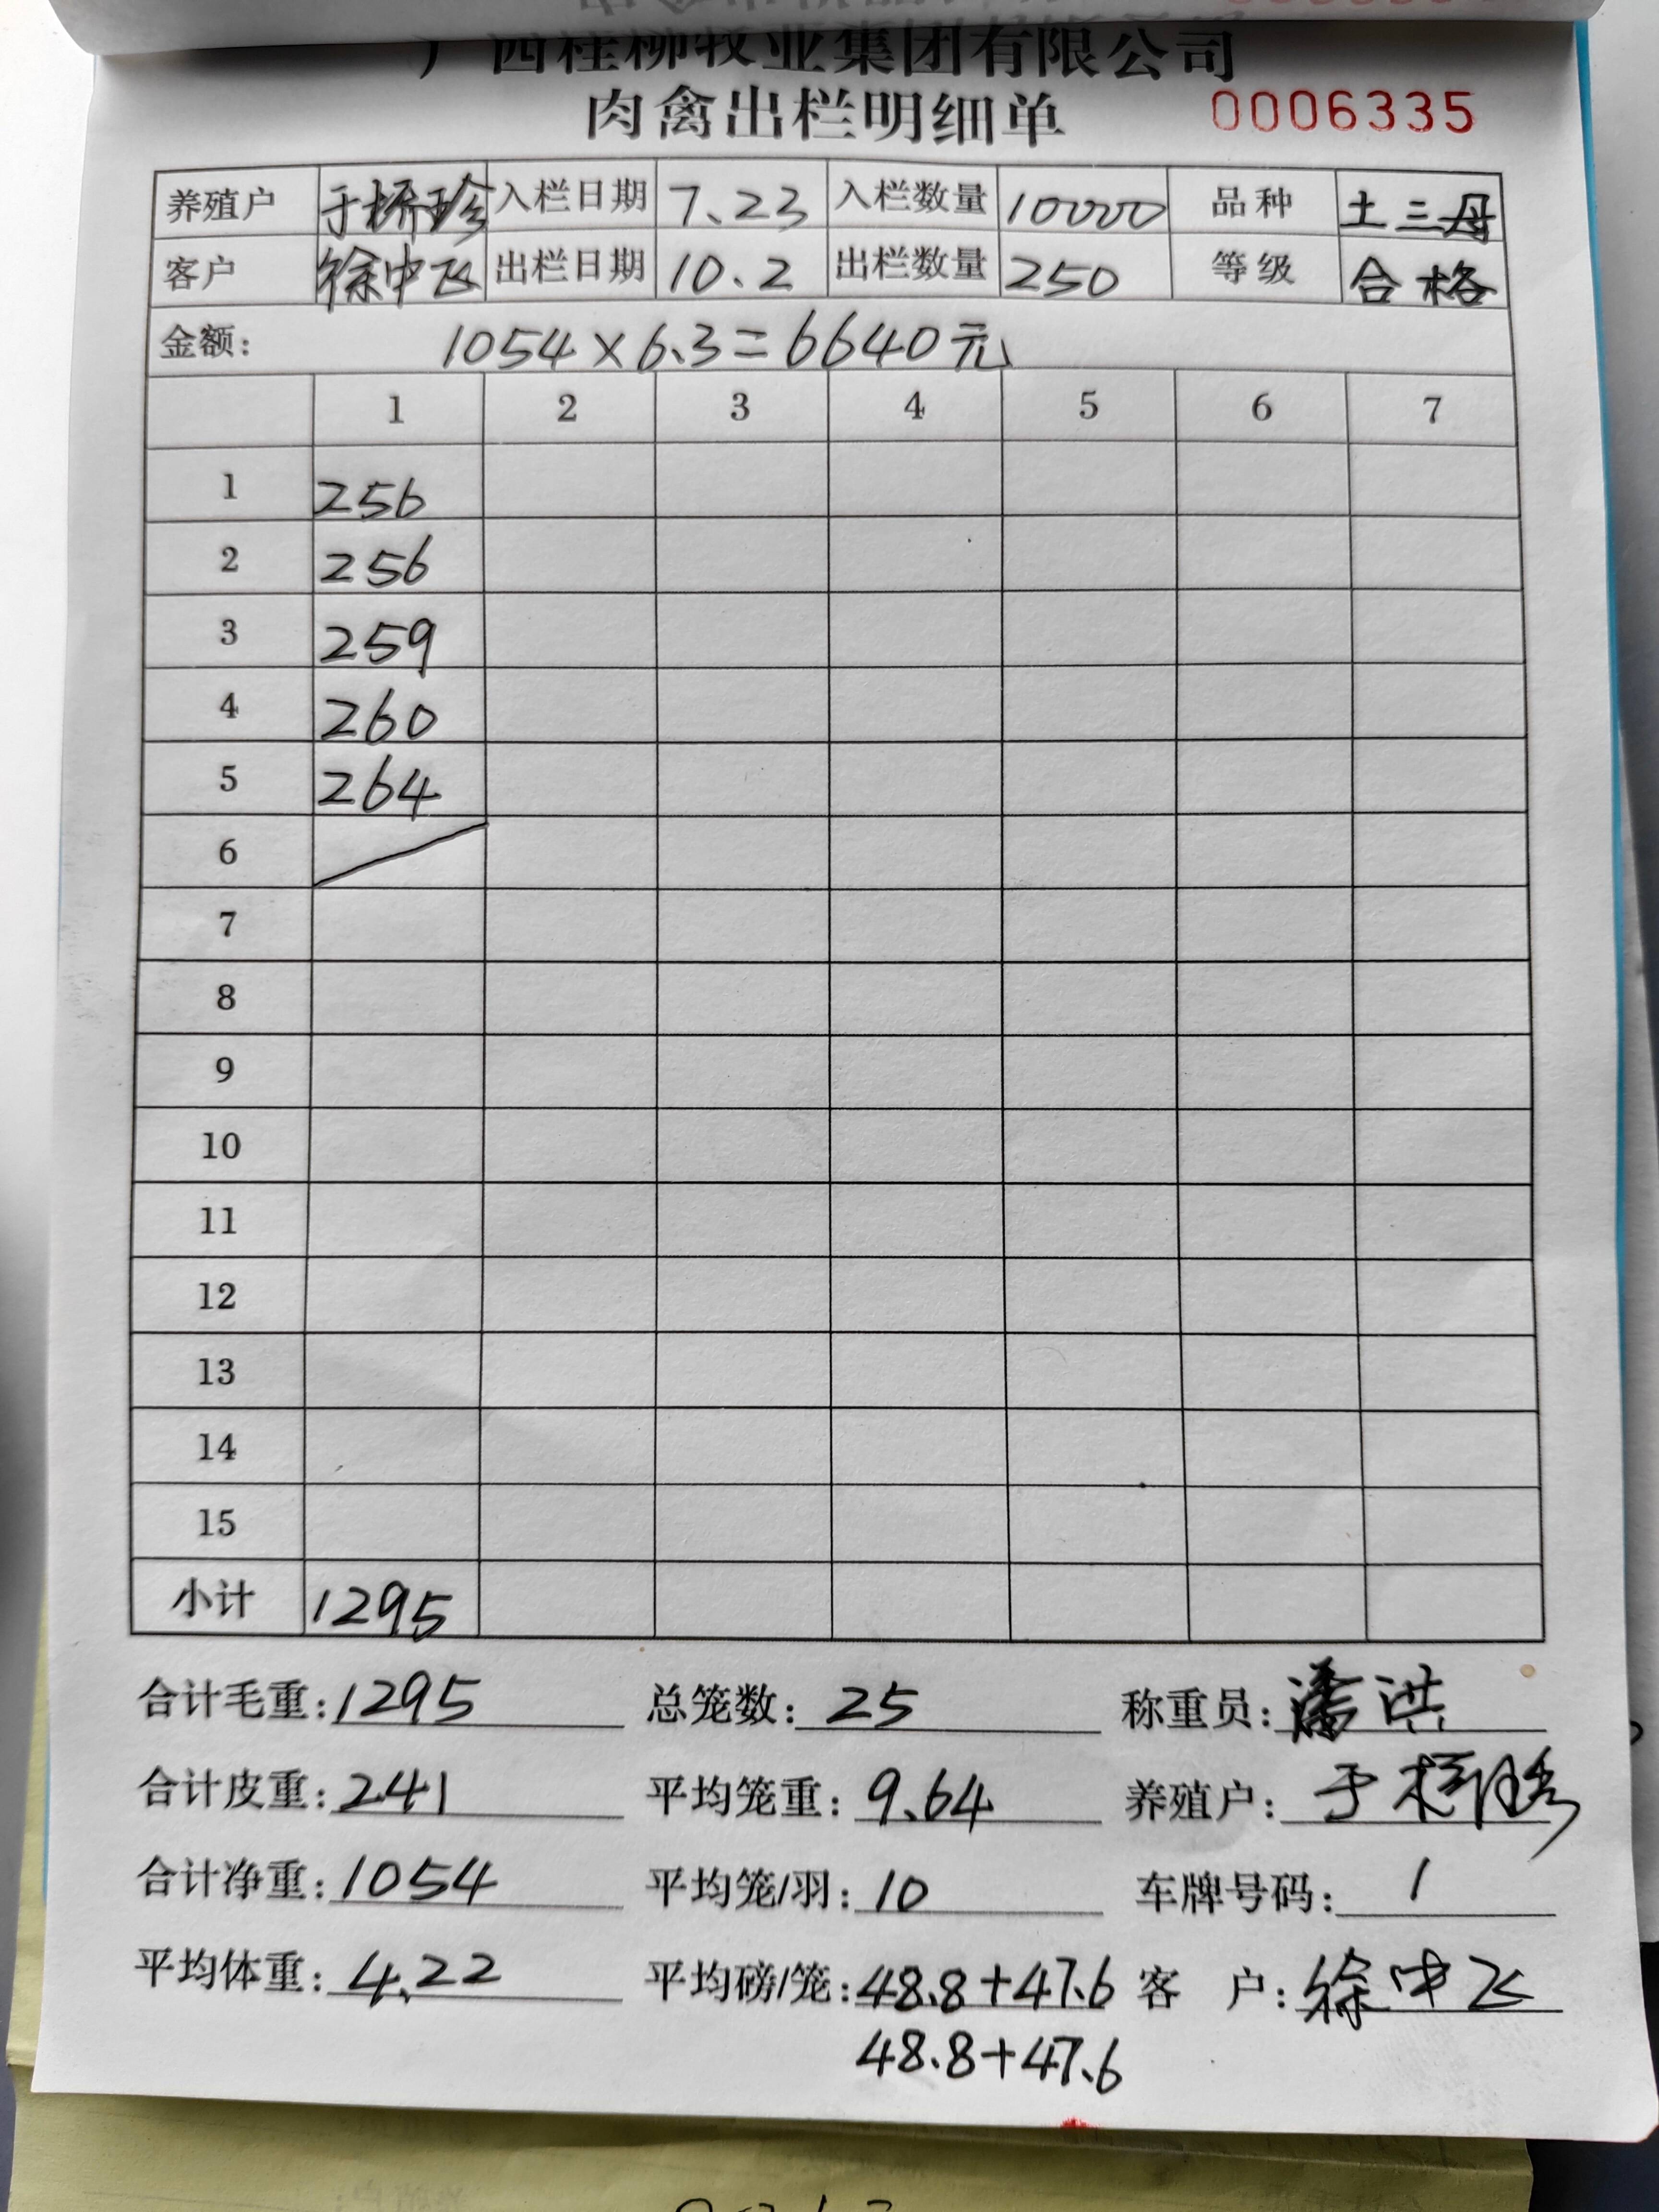 广西桂柳牧业集团有限公司
肉禽出栏明细单 0006335
养殖户 于桥珍 入栏日期 7.23 入栏数量 10000 品种 土三母
客户 徐中飞 出栏日期 10.2 出栏数量 250 等级 合格
金额: 1054×6.3=6640元
1 2 3 4 5 6 7
1 256
2 256
3 259
4 260
5 264
6
7
8
9
10
11
12
13
14
15
小计 1295
合计毛重: 1295 总笼数: 25 称重员: 潘洪
合计皮重: 241 平均笼重: 9.64 养殖户: 于桥珍
合计净重: 1054 平均笼/羽: 10 车牌号码: 1
平均体重: 4.22 平均磅/笼: 48.8+47.6 客 户: 徐中飞
48.8+47.6